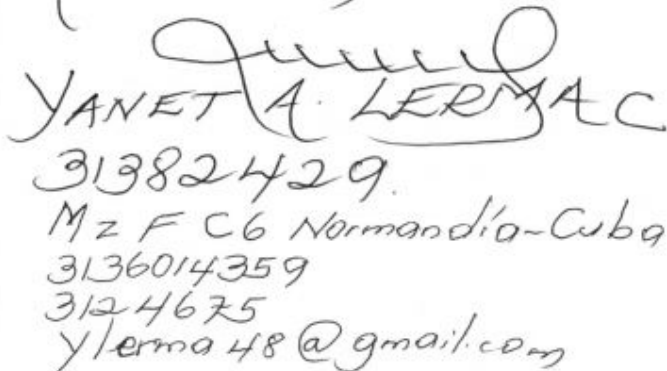 YANET A. LERMA C
31382429.
Mz F C6 Normandía-Cuba
3136014359
3124675
ylerma48@gmail.com